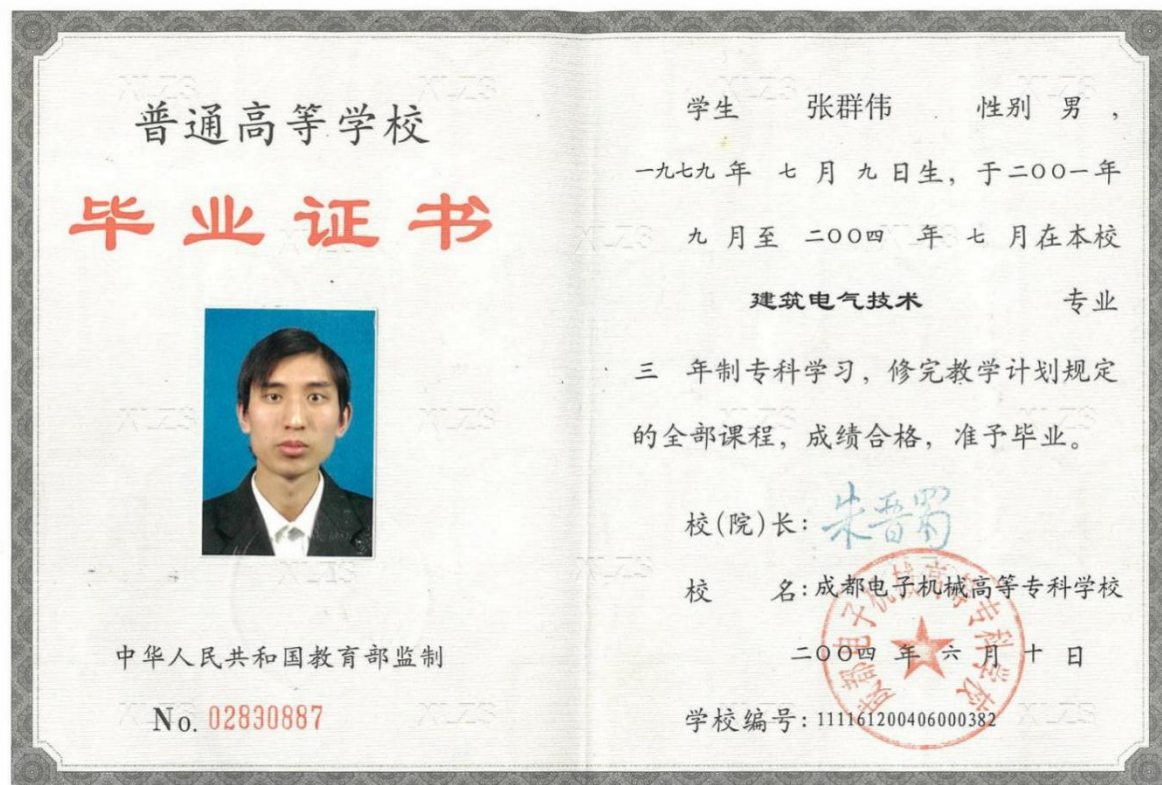 普通高等学校
毕业证书
中华人民共和国教育部监制
No. 02830887
学生 张群伟 性别 男,
一九七九年 七月九日生, 于二〇〇一年
九月至 二〇〇四 年 七月在本校
建筑电气技术 专业
三 年制专科学习, 修完教学计划规定
的全部课程, 成绩合格, 准予毕业。
校(院)长: 朱晋蜀
校 名: 成都电子机械高等专科学校
二〇〇四 年 六月十日
学校编号: 111161200406000382
成都电子机械高等专科学校
XLZS